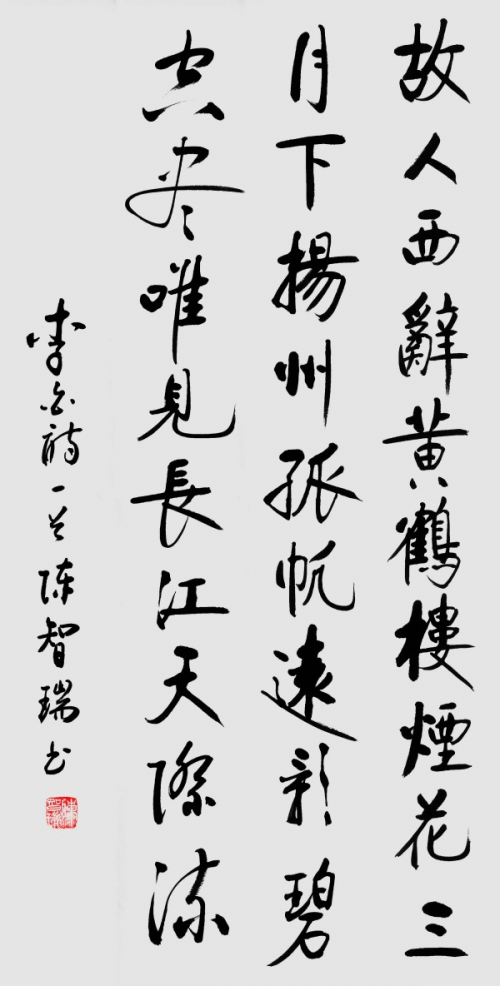 故人西辭黃鶴樓煙花三
月下揚州孤帆遠影碧
空盡唯見長江天際流
李白詩一首陳智瑞書